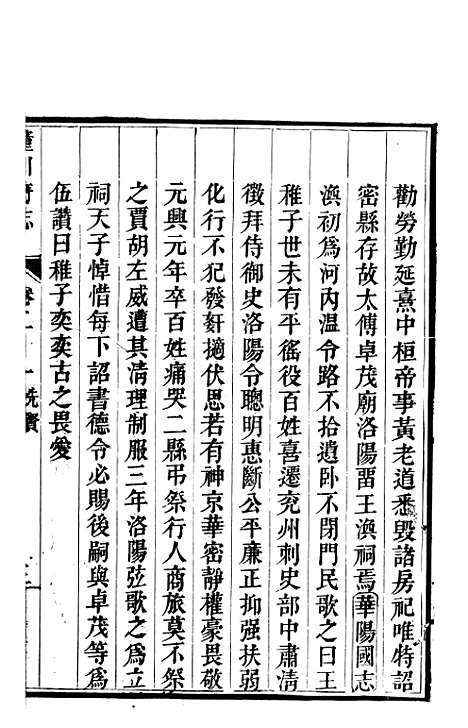 勸勞勤延熹中桓帝事黃老道悉毀諸房祀唯特詔
密縣存故太傅卓茂廟洛陽畱王渙祠焉華陽國志
渙初爲河內溫令路不拾遺卧不閉門民歌之曰王
稚子世未有平徭役百姓喜遷兖州刺史部中肅清
徵拜侍御史洛陽令聰明惠斷公平廉正抑强扶弱
化行不犯發姧擿伏思若有神京華密靜權豪畏敬
元興元年卒百姓痛哭二縣弔祭行人商旅莫不祭
之賈胡左威遭其清理制服三年洛陽弦歌之爲立
祠天子悼惜每下詔書德令必賜後嗣與卓茂等爲
伍讚曰稚子奕奕古之畏愛
潼川府志
卷二十一